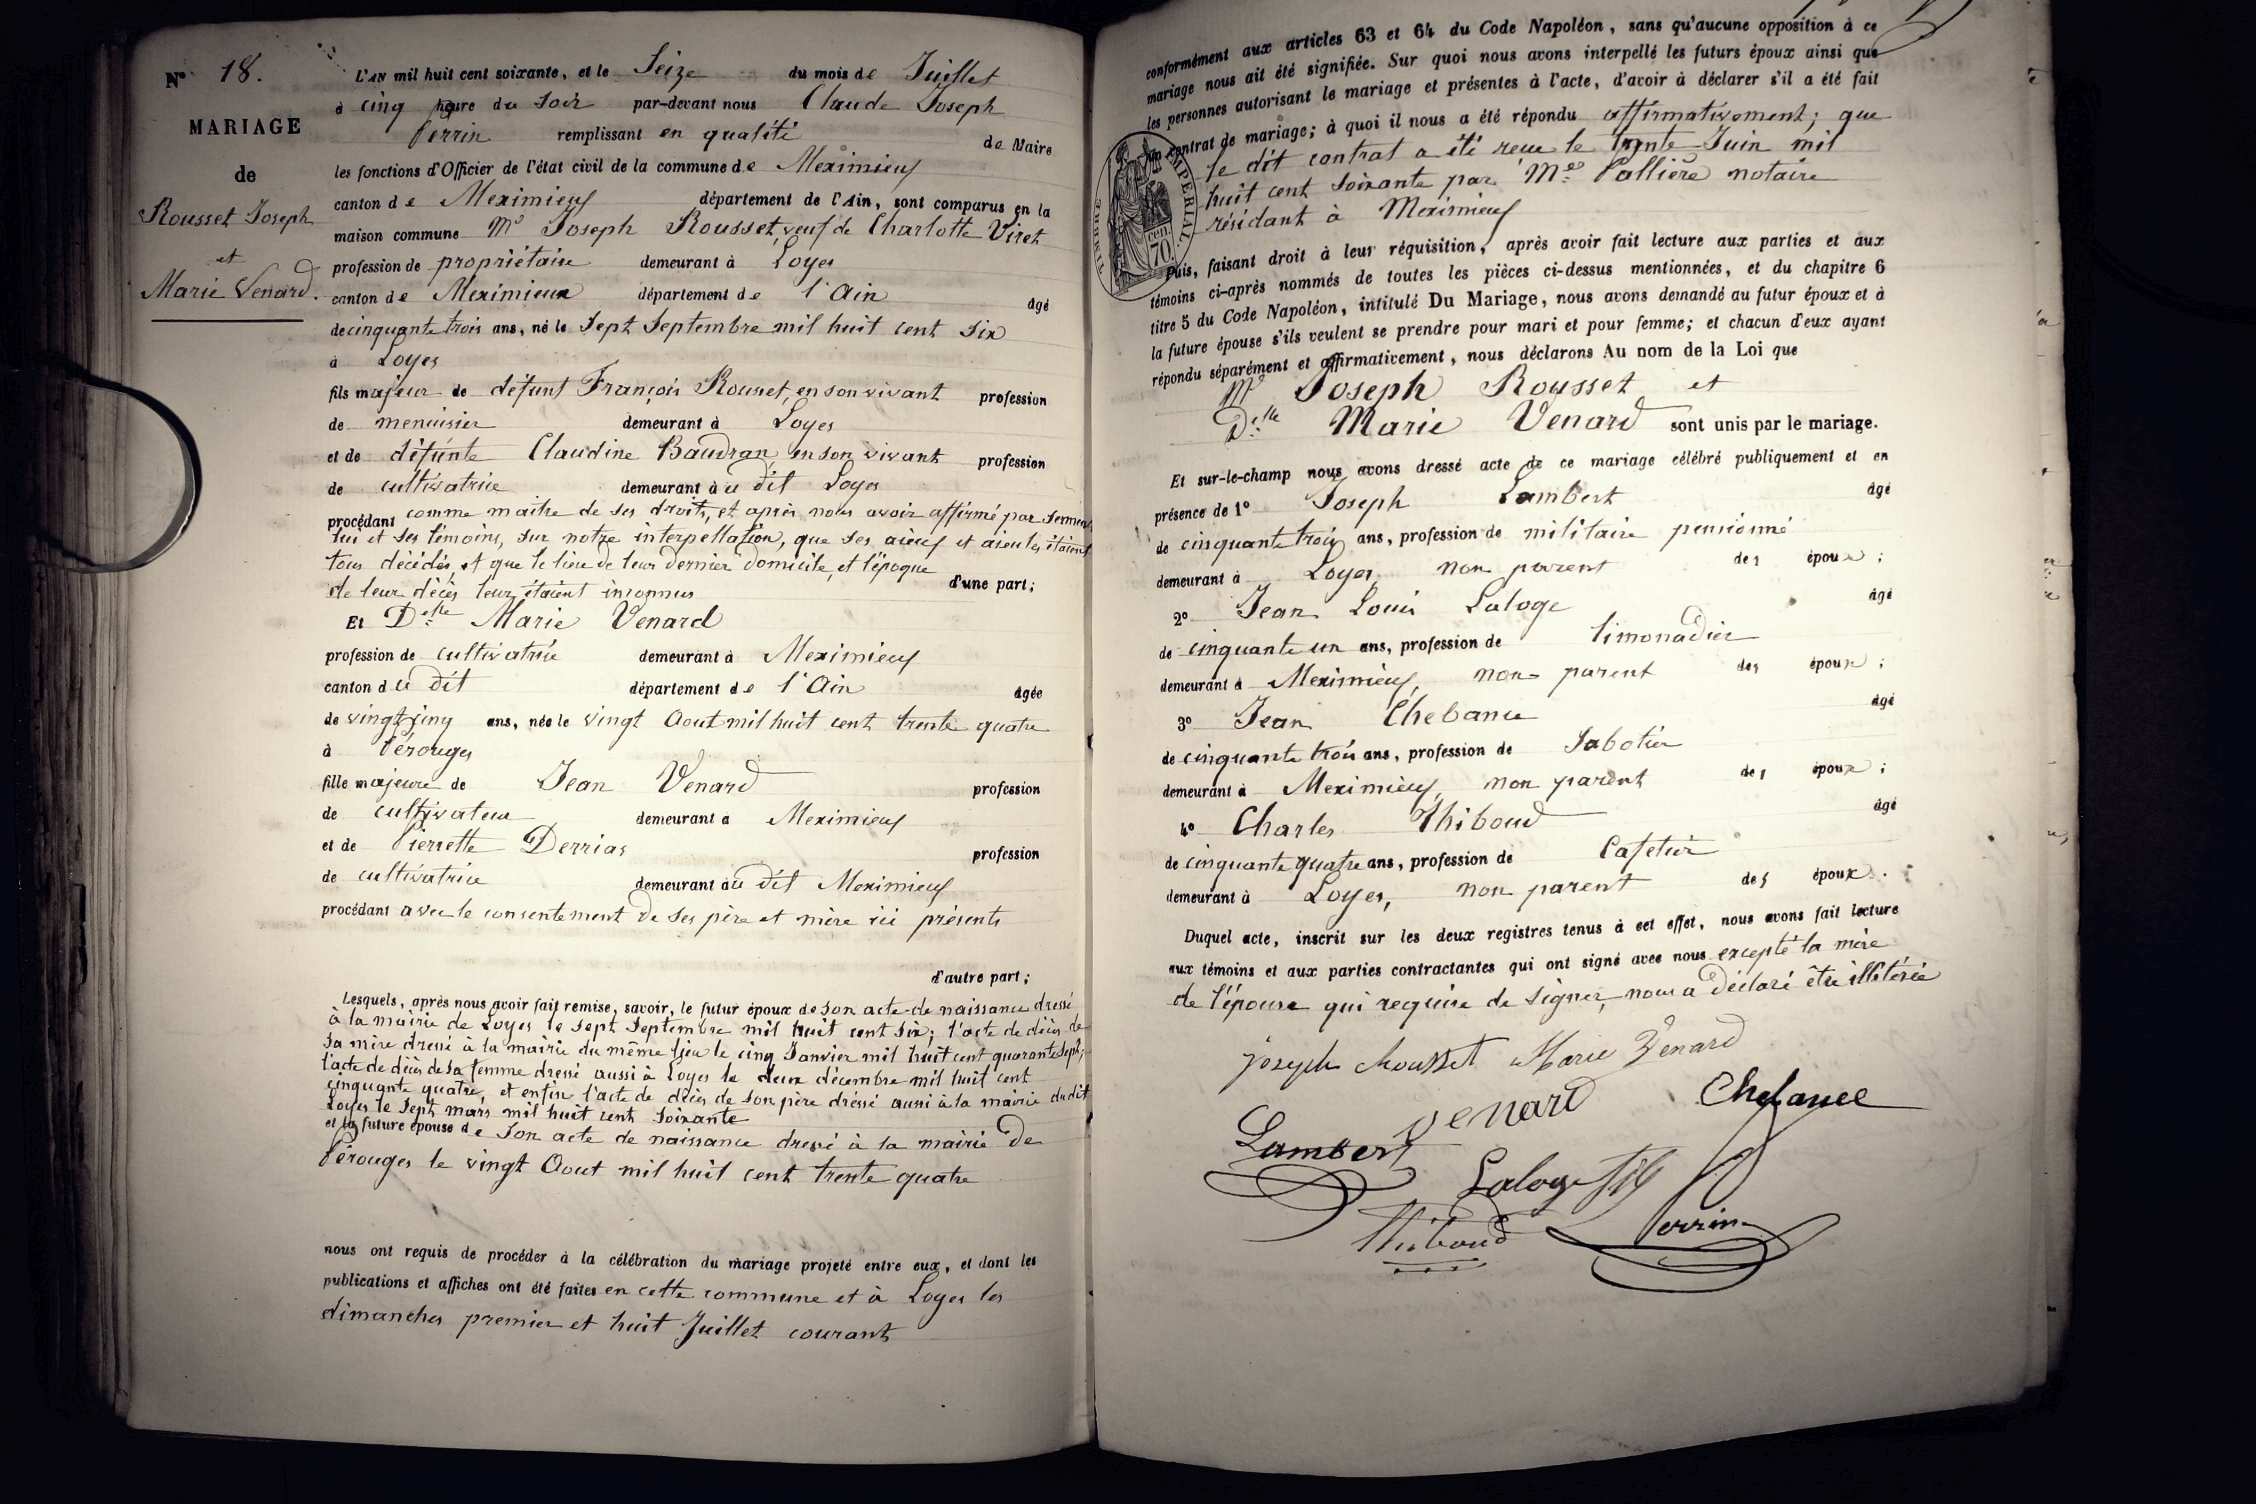 N° 18.
MARIAGE
de
Rousset Joseph
et
Marie Venard.
L'AN mil huit cent soixante, et le Seize du mois de Juillet
à cinq heure du soir par-devant nous Claude Joseph
Perrin remplissant en qualité de Maire
les fonctions d'Officier de l'état civil de la commune de Meximieux
canton de Meximieux département de l'Ain, sont comparus en la
maison commune Mr Joseph Rousset, veuf de Charlotte Viret
profession de propriétaire demeurant à Loyes
canton de Meximieux département de l'Ain âgé
de cinquante trois ans, né le Sept Septembre mil huit cent Six
à Loyes
fils majeur de défunt François Rousset, en son vivant profession
de menuisier demeurant à Loyes
et de défunte Claudine Baudran en son vivant profession
de cultivatrice demeurant au dit Loyes
procédant comme maître de ses droits, et après nous avoir affirmé par serment
lui et ses témoins, sur notre interpellation, que ses aïeux et aïeules étaient
tous décédés, et que le lieu de leur dernier domicile, et l'époque
de leur décès leur étaient inconnus d'une part;
Et Delle Marie Venard
profession de cultivatrice demeurant à Meximieux
canton du dit département de l'Ain âgée
de vingt cinq ans, née le vingt Aout mil huit cent trente quatre
à Pérouges
fille majeure de Jean Venard profession
de cultivateur demeurant à Meximieux
et de Pierrette Derrias profession
de cultivatrice demeurant au dit Meximieux
procédant avec le consentement de ses père et mère ici présents
d'autre part;
Lesquels, après nous avoir fait remise, savoir, le futur époux de son acte de naissance dressé
à la mairie de Loyes le sept Septembre mil huit cent six; l'acte de décès de
sa mère dressé à la mairie du même lieu le cinq Janvier mil huit cent quarante sept;
l'acte de décès de sa femme dressé aussi à Loyes le deux décembre mil huit cent
cinquante quatre, et enfin l'acte de décès de son père dressé aussi à la mairie du dit
Loyes le Sept mars mil huit cent soixante
et la future épouse de son acte de naissance dressé à la mairie de
Pérouges le vingt Aout mil huit cent trente quatre
nous ont requis de procéder à la célébration du mariage projeté entre eux, et dont les
publications et affiches ont été faites en cette commune et à Loyes les
dimanches premier et huit Juillet courant
conformément aux articles 63 et 64 du Code Napoléon, sans qu'aucune opposition à ce
mariage nous ait été signifiée. Sur quoi nous avons interpellé les futurs époux ainsi que
les personnes autorisant le mariage et présentes à l'acte, d'avoir à déclarer s'il a été fait
un contrat de mariage; à quoi il nous a été répondu affirmativement; que
le dit contrat a été reçu le trente Juin mil
huit cent soixante par Me Pallière notaire
résidant à Meximieux
TIMBRE IMPERIAL
70 cen.
Puis, faisant droit à leur réquisition, après avoir fait lecture aux parties et aux
témoins ci-après nommés de toutes les pièces ci-dessus mentionnées, et du chapitre 6
titre 5 du Code Napoléon, intitulé Du Mariage, nous avons demandé au futur époux et à
la future épouse s'ils veulent se prendre pour mari et pour femme; et chacun d'eux ayant
répondu séparément et affirmativement, nous déclarons Au nom de la Loi que
Mr Joseph Rousset et
Delle Marie Venard sont unis par le mariage.
Et sur-le-champ nous avons dressé acte de ce mariage célébré publiquement et en
présence de 1° Joseph Lambert âgé
de cinquante trois ans, profession de militaire pensionné
demeurant à Loyes, non parent des époux;
2° Jean Louis Laloge âgé
de cinquante un ans, profession de limonadier
demeurant à Meximieux, non parent des époux;
3° Jean Chebance âgé
de cinquante trois ans, profession de Sabotier
demeurant à Meximieux, non parent des époux;
4° Charles Thiboud âgé
de cinquante quatre ans, profession de Cafetier
demeurant à Loyes, non parent des époux.
Duquel acte, inscrit sur les deux registres tenus à cet effet, nous avons fait lecture
aux témoins et aux parties contractantes qui ont signé avec nous excepté la mère
de l'épouse qui requise de signer, nous a déclaré être illétérée
joseph Rousset Marie Venard
venard Chebance
Lambert
Laloge
Thiboud Perrin